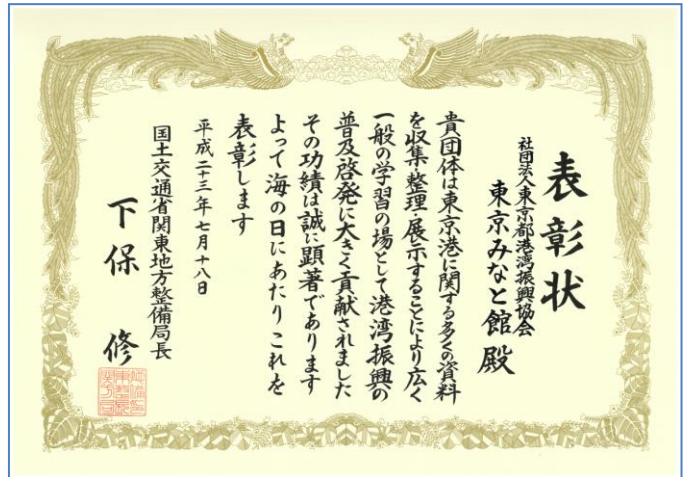 表彰状
社団法人東京都港湾振興協会
東京みなと館 殿
貴団体は東京港に関する多くの資料
を収集・整理・展示することにより広く
一般の学習の場として港湾振興の
普及啓発に大きく貢献されました
その功績は誠に顕著であります
よって海の日にあたりこれを
表彰します
平成二十三年七月十八日
国土交通省関東地方整備局長
下保 修